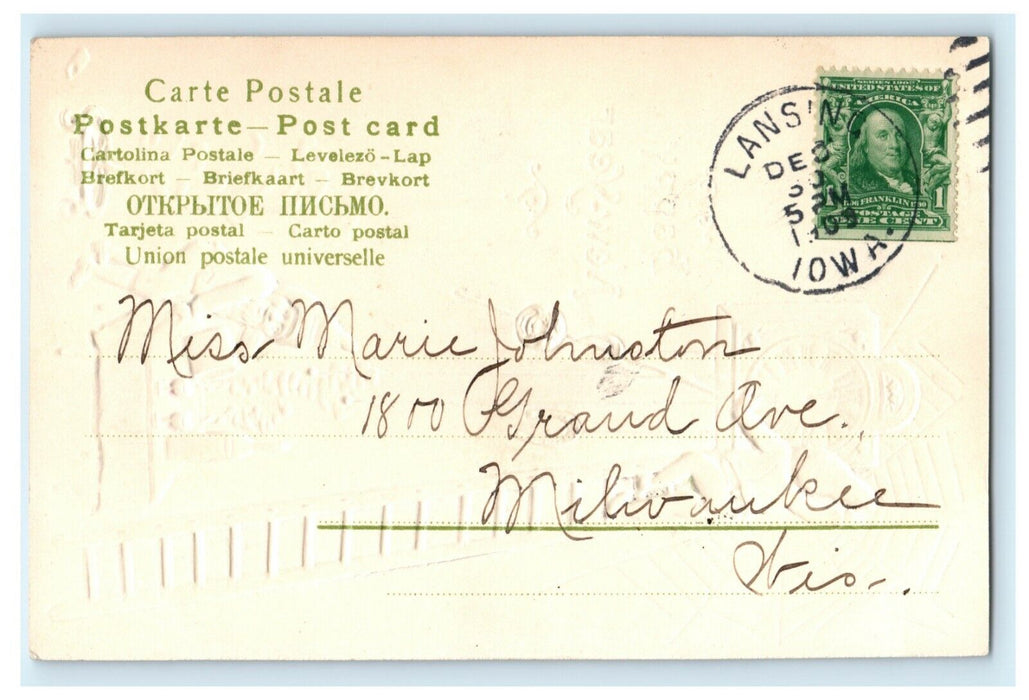 Carte Postale
Postkarte — Post card
Cartolina Postale — Levelezö-Lap
Brefkort — Briefkaart — Brevkort
ОТКРЫТОЕ ПИСЬМО.
Tarjeta postal — Carto postal
Union postale universelle
LANSING
DEC
30
5 PM
IOWA.
SERIES 1902
UNITED STATES OF
AMERICA
FRANKLIN
1
POSTAGE
ONE CENT
Miss Marie Johnston
1800 Grand Ave.
Milwaukee
Wis.